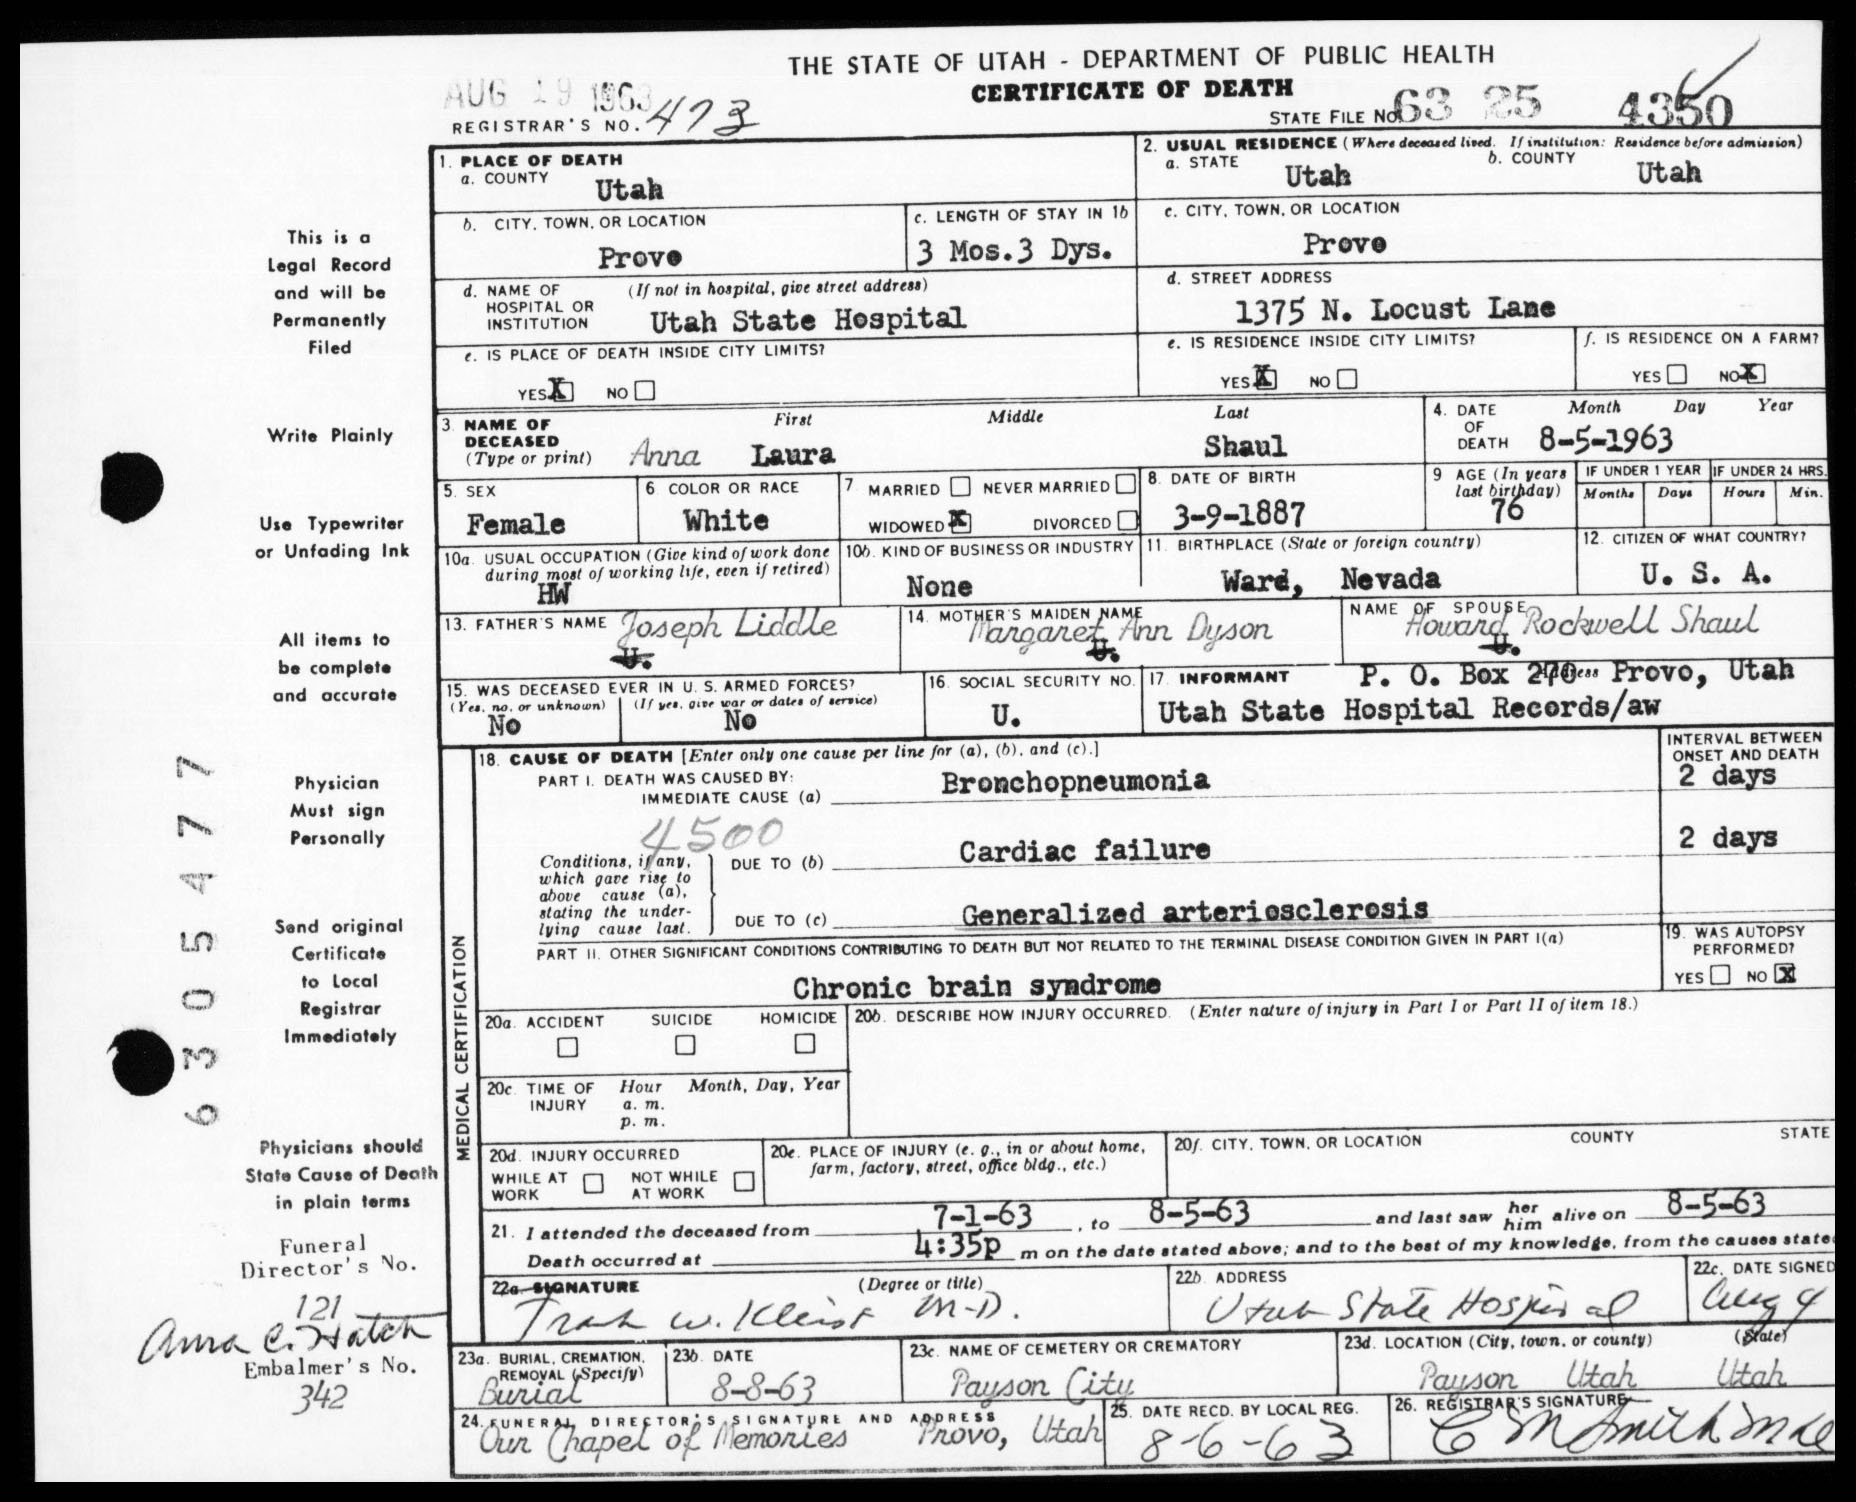 THE STATE OF UTAH - DEPARTMENT OF PUBLIC HEALTH
CERTIFICATE OF DEATH
AUG 19 1963
REGISTRAR'S NO. 473
STATE FILE NO. 63 25 4350
1. PLACE OF DEATH
a. COUNTY Utah
2. USUAL RESIDENCE (Where deceased lived. If institution: Residence before admission)
a. STATE Utah b. COUNTY Utah
b. CITY, TOWN, OR LOCATION Provo
c. LENGTH OF STAY IN 1b 3 Mos.3 Dys.
c. CITY, TOWN, OR LOCATION Provo
d. NAME OF HOSPITAL OR INSTITUTION (If not in hospital, give street address) Utah State Hospital
d. STREET ADDRESS 1375 N. Locust Lane
e. IS PLACE OF DEATH INSIDE CITY LIMITS?
YES X NO
e. IS RESIDENCE INSIDE CITY LIMITS?
YES X NO
f. IS RESIDENCE ON A FARM?
YES NO X
3. NAME OF DECEASED (Type or print) First Middle Last
Anna Laura Shaul
4. DATE OF DEATH Month Day Year
8-5-1963
5. SEX Female
6 COLOR OR RACE White
7 MARRIED NEVER MARRIED
WIDOWED X DIVORCED
8. DATE OF BIRTH 3-9-1887
9 AGE (In years last birthday) 76
IF UNDER 1 YEAR Months Days
IF UNDER 24 HRS. Hours Min.
10a. USUAL OCCUPATION (Give kind of work done during most of working life, even if retired) HW
10b. KIND OF BUSINESS OR INDUSTRY None
11. BIRTHPLACE (State or foreign country) Ward, Nevada
12. CITIZEN OF WHAT COUNTRY? U. S. A.
13. FATHER'S NAME Joseph Liddle
U.
14. MOTHER'S MAIDEN NAME Margaret Ann Dyson
U.
NAME OF SPOUSE Howard Rockwell Shaul
U.
15. WAS DECEASED EVER IN U. S. ARMED FORCES?
(Yes, no, or unknown) No
(If yes, give war or dates of service) No
16. SOCIAL SECURITY NO. U.
17. INFORMANT Address P. O. Box 270 Provo, Utah
Utah State Hospital Records/aw
MEDICAL CERTIFICATION
18. CAUSE OF DEATH [Enter only one cause per line for (a), (b), and (c).]
INTERVAL BETWEEN ONSET AND DEATH
PART I. DEATH WAS CAUSED BY:
IMMEDIATE CAUSE (a) Bronchopneumonia 2 days
4500
Conditions, if any, which gave rise to above cause (a), stating the underlying cause last.
DUE TO (b) Cardiac failure 2 days
DUE TO (c) Generalized arteriosclerosis
PART II. OTHER SIGNIFICANT CONDITIONS CONTRIBUTING TO DEATH BUT NOT RELATED TO THE TERMINAL DISEASE CONDITION GIVEN IN PART I(a)
Chronic brain syndrome
19. WAS AUTOPSY PERFORMED?
YES NO X
20a. ACCIDENT SUICIDE HOMICIDE
20b. DESCRIBE HOW INJURY OCCURRED. (Enter nature of injury in Part I or Part II of item 18.)
20c. TIME OF INJURY Hour Month, Day, Year
a. m.
p. m.
20d. INJURY OCCURRED
WHILE AT WORK NOT WHILE AT WORK
20e. PLACE OF INJURY (e. g., in or about home, farm, factory, street, office bldg., etc.)
20f. CITY, TOWN, OR LOCATION COUNTY STATE
21. I attended the deceased from 7-1-63, to 8-5-63 and last saw her him alive on 8-5-63
Death occurred at 4:35p m on the date stated above; and to the best of my knowledge, from the causes state
22a. SIGNATURE (Degree or title)
W. Kleist M-D.
22b. ADDRESS Utah State Hospital
22c. DATE SIGNED Aug 4
23a. BURIAL, CREMATION, REMOVAL (Specify) Burial
23b. DATE 8-8-63
23c. NAME OF CEMETERY OR CREMATORY Payson City
23d. LOCATION (City, town, or county) (State)
Payson Utah Utah
24. FUNERAL DIRECTOR'S SIGNATURE AND ADDRESS
Our Chapel of Memories Provo, Utah
25. DATE RECD. BY LOCAL REG. 8-6-63
26. REGISTRAR'S SIGNATURE
C M Smith
This is a
Legal Record
and will be
Permanently
Filed
Write Plainly
Use Typewriter
or Unfading Ink
All items to
be complete
and accurate
Physician
Must sign
Personally
Send original
Certificate
to Local
Registrar
Immediately
Physicians should
State Cause of Death
in plain terms
Funeral
Director's No.
121
Anna C. Hatch
Embalmer's No.
342
6305477